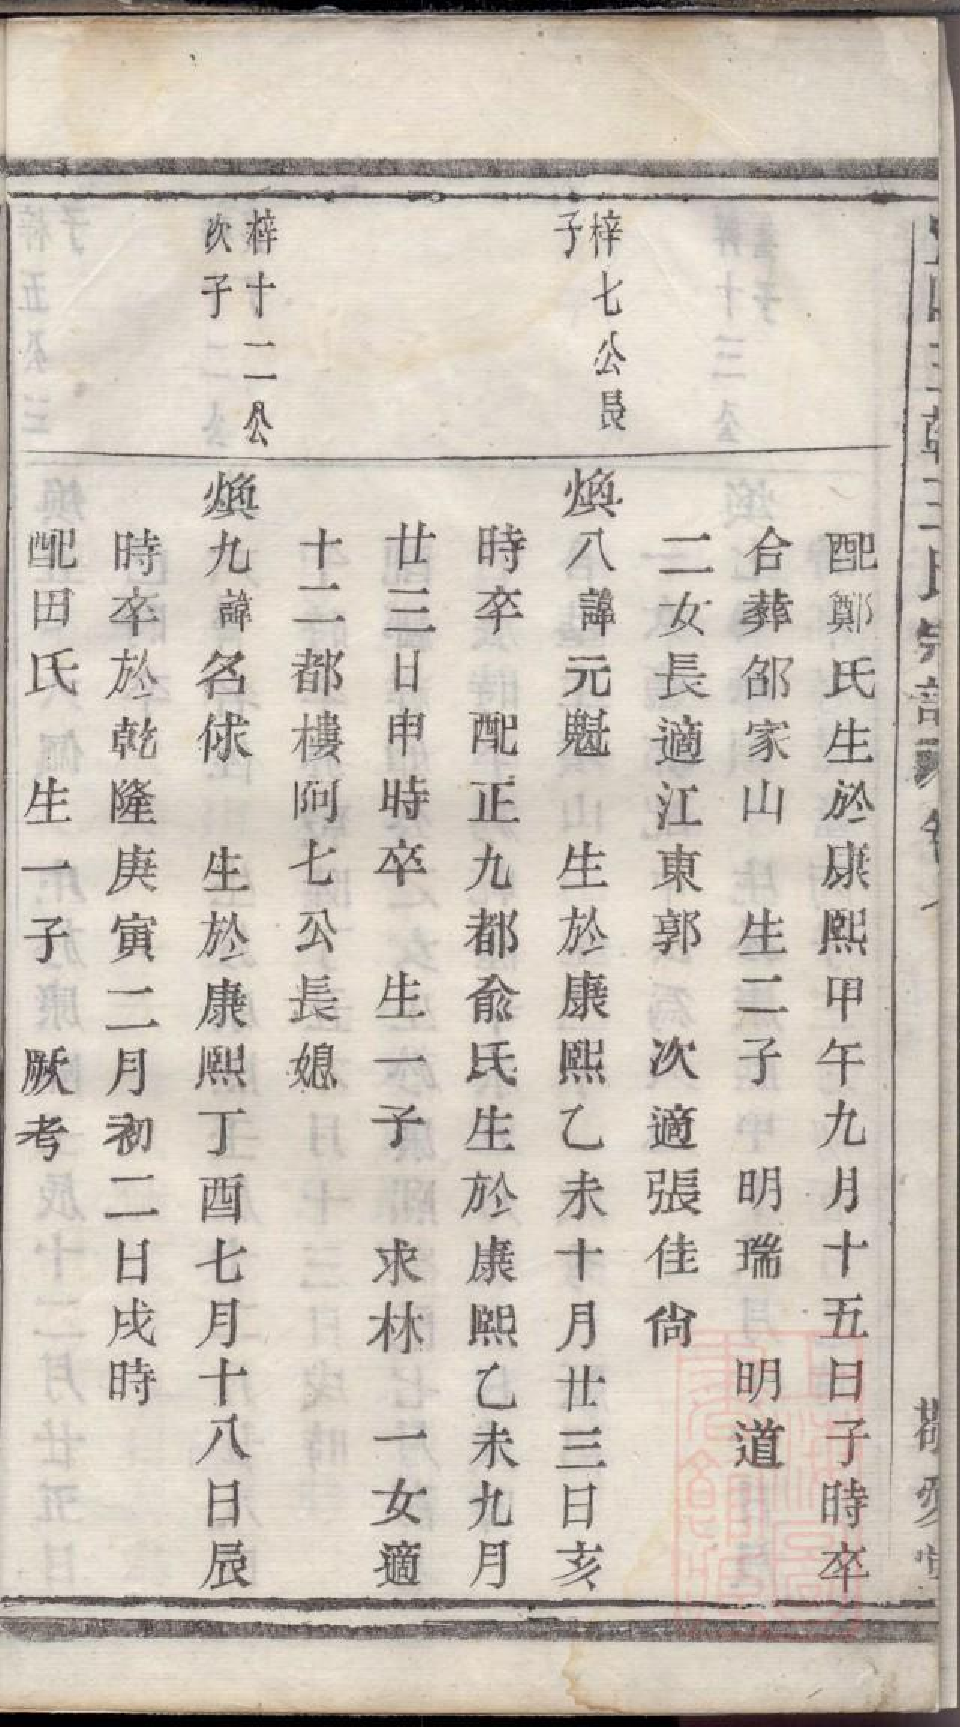 配鄭氏生於康熙甲午九月十五日子時卒
合葬郃家山 生二子 明瑞 明道
二女長適江東郭 次適張佳尙
梓七公長
子
煥八諱元魁 生於康熙乙未十月廿三日亥
時卒 配正九都俞氏生於康熙乙未九月
廿三日申時卒 生一子 求林 一女適
十二都樓阿七公長媳
梓十二公
次子
煥九諱名俅 生於康熙丁酉七月十八日辰
時卒於乾隆庚寅二月初二日戌時
配田氏 生一子 厥考
王氏宗譜